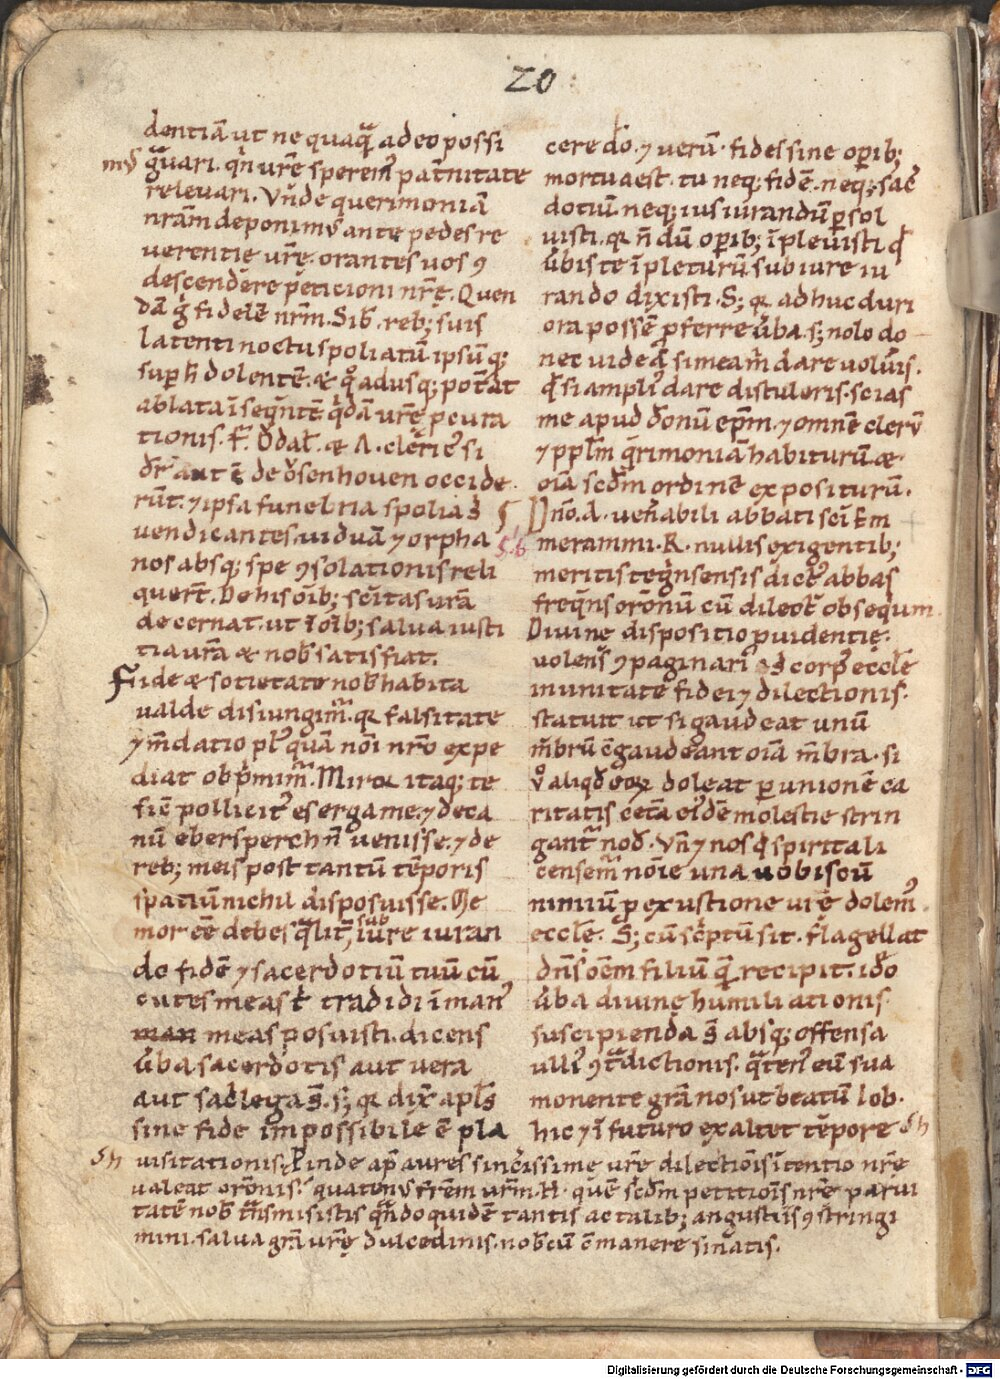 20
dentiā ut nequaquā adeo possi
mus
gͣuari. qͥn urē speremꝰ pat̄nitate
releuari. Vn̄de querimoniā
nrām deponimꝰ ante pedes re
uerentie urę̄. orantes uos ꝯ
descendere peticioni nrę̄. Quen
dā gͥ fidelē nrm̄. Sib̄. reb; suis
latenti noctu spoliatū ipsūq;
suꝑ h̄ dolentē. & qͦ adusq; potͣat
ablata īseqn̄tē qͥdā urę̄ ꝓcura
tionis. F. Ōdal. & A. clericꝰ si
de ōsenhouen occide
rūt. ⁊ ipsa funebria spolia s̄
uendicantes. uiduā ⁊ orpha
nos absq; spe ꝯsolationis reli
quer̄t. De his oīb; scītas urā
decernat. ut īoīb; salua iusti
tia urā & nob̄ satisfiat.
Fide & societate nob̄ habita
ualde disiungimͬ. qꝫ falsitate
⁊ m̄datio plꝰ quā noī nr̄o expe
diat obp̄mimͬ. Miror itaq; te
pollicitꝰ es erga me. ⁊ deca
nū ebersperch n̄ uenisse. ⁊ de
reb; meis post tantū tēporis
spatiū nichil disposuisse. Me
mor eē debes qͣlit̄, sub iure iuran
do fidē ⁊ sacerdotiū tuū cū
tradidi ī manꝰ
man meas posuisti. dicens
ūba sacerdotis aut uera
aut sac̄lega s̄. s; qꝫ dix̄ apl̄s
sine fide impossibile ē pla
cere dō. ⁊ uerū. fides sine opib;
mortua est. tu neq; fidē. neq; sac̄
dotiū. neq; ius iurandū ꝑsol
uisti. qꝫ n̄ dū opib; īpleuisti qd̄
ūbis te īpleturū sub iure iu
rando dixisti. S; qꝫ adhuc duri
ora possē ꝑferre ūba. s; nolo do
nec uideā si meam̄ dare uolūis.
qd̄ si ampliꝰ dare distuleris. scias
me apud dōnū epm̄. ⁊ omnē clerū
⁊ ppl̄m qͥrimoniā habiturū. &
oīa scd̄m ordinē expositurū.
Dn̄o. A. uen̄abili abbati scī Em
S. b
merammi. R. nullis exigentib;
meritis tegn̄sensis dictꝰ abbas
freqn̄s orōnū cū dilect̄ obsequm̄
Diuine dispositio ꝓuidentię.
uolens ꝯpaginari corpꝰ eccl̄e
inunitate fidei ⁊ dilectionis.
statuit ut si gaudeat unū
m̄brū ꝯgaudeant oīa m̄bra. si
v̊ aliqd doleat ꝑ unionē ca
ritatis cetā eidē molestie strin
gantͬ nod̄. Vn̄ ⁊ nos qͥ spiritali
censemͬ noīe una uobiscū
nimiū ꝑ exustione urę̄ dolemꝰ
eccl̄e. S; cū sc̄ptū sit. flagellat
dn̄s oēm filiū quē recipit. idō
ūba diuine humiliationis
suscipienda s̄ absq; offensa
ulliꝰ ꝯtͣdictionis. qͣtenꝰ eū sua
monente grā nos ut beatū Iob.
hic ⁊ ī futuro exaltet tēpore
visitationis. Proinde ap̄ aures sinc̄issime urę̄ dilectiōis ītentio nrę̄
ualeat orōnis. quatenꝰ frēm urm̄. H. quē scd̄m petitiōis nrę̄ parui
tatē nob̄ tͣnsmisistis qn̄doquidē tantis ac talib; angustiis ꝯstringi
mini. salua grā urę̄ dulcedinis. nob̄cū ꝯmanere sinatis.
Digitalisierung gefördert durch die Deutsche Forschungsgemeinschaft - DFG